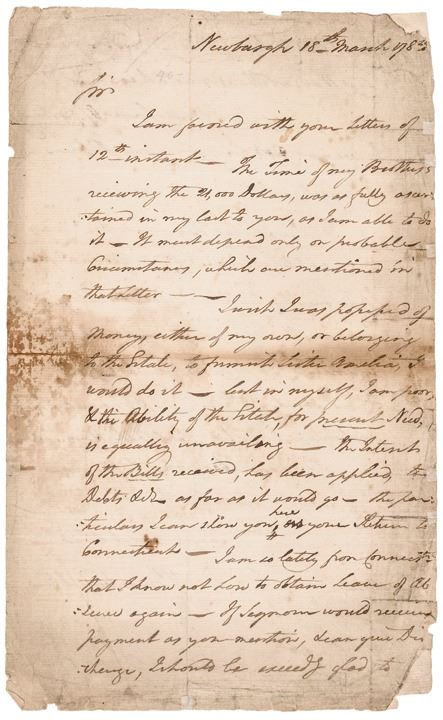 Newburgh 18th March 1783
Sir
I am favored with your Letters of
12th instant — The Time of my Brothers
receiving the 21,000 Dollars, was as fully ascer
:tained in my last to you, as I am able to do
it — It must depend only on probable
Circumstances, which are mentioned in
that Letter — — I wish I was possessed of
Money, either of my own, or belonging
to the Estate, to furnish Sister Amelia, I
would do it — but in myself, I am poor,
& the Ability of the Estate, for present Need,
is equally unavailing — The Interest
of the Bills received, has been applied, to
Debts &c as far as it would go — the par
:ticulars I can show you, here on your Return to
Connecticut — I am so lately from Connecti
that I know not how to obtain Leave of Ab
:sence again — If Seymour would receive
payment as you mention, & can give Dis
:charge, I should be exceedg glad to